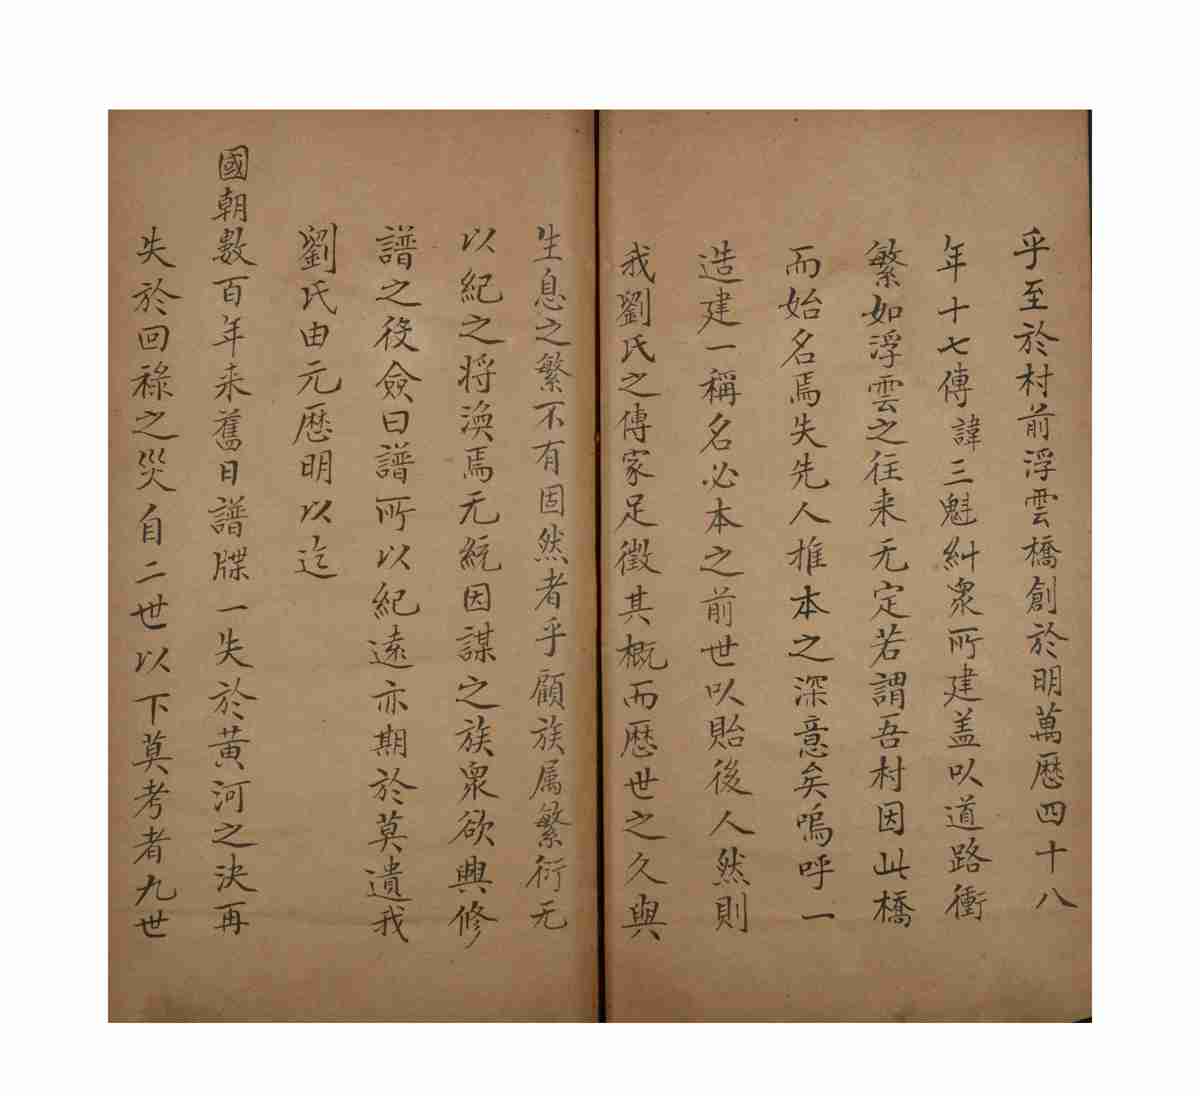 乎至於村前浮雲橋創於明萬歷四十八
年十七傳諱三魁糾衆所建盖以道路衝
繁如浮雲之往来无定若謂吾村因此橋
而始名焉失先人推本之深意矣嗚呼一
造建一稱名必本之前世以貽後人然則
我劉氏之傳家足徵其概而歷世之久與
生息之繁不有固然者乎顧族属繁衍无
以紀之将渙焉无統因謀之族衆欲興修
譜之役僉曰譜所以紀遠亦期於莫遺我
劉氏由元歷明以迄
國朝數百年来舊日譜牒一失於黃河之決再
失於回祿之災自二世以下莫考者九世